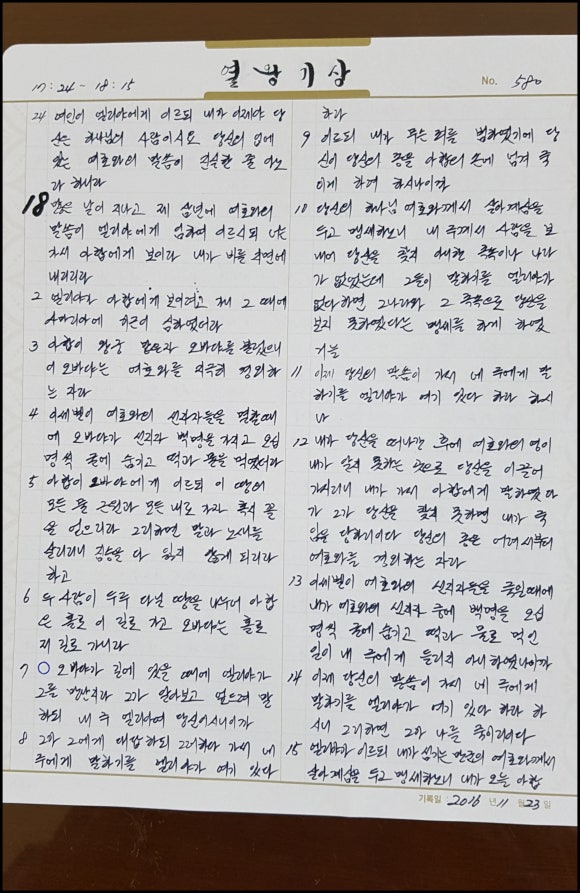 열왕기상
17:24-18:15
No. 580
24 여인이 엘리야에게 이르되 내가 이제야 당
신은 하나님의 사람이시요 당신의 입에
있는 여호와의 말씀이 진실한 줄 아노
라 하니라
18 많은 날이 지나고 제 삼년에 여호와의
말씀이 엘리야에게 임하여 이르시되 너는
가서 아합에게 보이라 내가 비를 지면에
내리리라
2 엘리야가 아합에게 보이려고 가니 그 때에
사마리아에 기근이 심하였더라
3 아합이 왕궁 맡은자 오바댜를 불렀으니
이 오바댜는 여호와를 지극히 경외하
는 자라
4 이세벨이 여호와의 선지자들을 멸할때
에 오바댜가 선지자 백명을 가지고 오십
명씩 굴에 숨기고 떡과 물을 먹였더라
5 아합이 오바댜에게 이르되 이 땅의
모든 물 근원과 모든 내로 가자 혹시 꼴
을 얻으리라 그리하면 말과 노새를
살리리니 짐승을 다 잃지 않게 되리라
하고
6 두 사람이 두루 다닐 땅을 나누어 아합
은 홀로 이 길로 가고 오바댜는 홀로
저 길로 가니라
7 오바댜가 길에 있을 때에 엘리야가
그를 만난지라 그가 알아보고 엎드려 말
하되 내 주 엘리야여 당신이시니이까
8 그가 그에게 대답하되 그러하다 가서 네
주에게 말하기를 엘리야가 여기 있다
하라
9 이르되 내가 무슨 죄를 범하였기에 당
신이 당신의 종을 아합의 손에 넘겨 죽
이게 하려 하시나이까
10 당신의 하나님 여호와께서 살아계심을
두고 맹세하노니 내 주께서 사람을 보
내어 당신을 찾지 아니한 족속이나 나라
가 없었는데 그들이 말하기를 엘리야가
없다하면 그나라와 그 족속으로 당신을
보지 못하였다는 맹세를 하게 하였
거늘
11 이제 당신의 말씀이 가서 네 주에게 말
하기를 엘리야가 여기 있다 하라 하시
나
12 내가 당신을 떠나간 후에 여호와의 영이
내가 알지 못하는 곳으로 당신을 이끌어
가시리니 내가 가서 아합에게 말하였다
가 그가 당신을 찾지 못하면 내가 죽
임을 당하리이다 당신의 종은 어려서부터
여호와를 경외하는 자라
13 이세벨이 여호와의 선지자들을 죽일때에
내가 여호와의 선지자 중에 백명을 오십
명씩 굴에 숨기고 떡과 물로 먹인
일이 내 주에게 들리지 아니하였나이까
14 이제 당신의 말씀이 가서 네 주에게
말하기를 엘리야가 여기 있다 하라 하
시니 그리하면 그가 나를 죽이리이다
15 엘리야가 이르되 내가 섬기는 만군의 여호와께서
살아계심을 두고 맹세하노니 내가 오늘 아합
기록일 2016 년 11 월 23 일